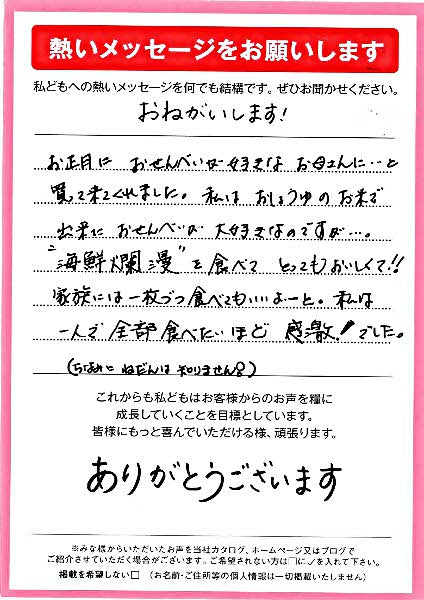 熱いメッセージをお願いします
私どもへの熱いメッセージを何でも結構です。ぜひお聞かせください。
おねがいします!
お正月に おせんべいが大好きな お母さんに…と
買って来てくれました。私は おしょうゆの お米で
出来た おせんべいが 大好きなのですが…。
"海鮮爛漫"を食べて とってもおいしくて!!
家族には一枚づつ食べてもいいよーと。私は
一人で 全部食べたいほど 感激!でした。
(ちなみに ねだんは 知りません)
これからも私どもはお客様からのお声を糧に
成長していくことを目標としています。
皆様にもっと喜んでいただける様、頑張ります。
ありがとうございます
※みな様からいただいたお声を当社カタログ、ホームページ又はブログで
ご紹介させていただく場合がございます。ご希望されない方は□に✓を入れて下さい。
掲載を希望しない□ (お名前・ご住所等の個人情報は一切掲載いたしません)